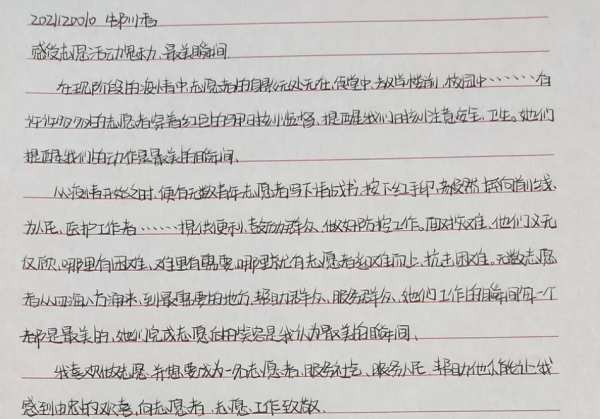 2021120010
感受志愿活动魅力,最美瞬间
在现阶段的疫情中志愿者的身影无处无在,食堂中,教学楼前,校园中……有
许许多多的志愿者穿着红色的马甲时刻监督、提醒我们时刻注意安全、卫生。她们
提醒我们的动作是最美的瞬间。
从疫情开始之时,便有无数青年志愿者写下请战书,按下红手印,毅然奔向前线,
为人民、医护工作者……提供便利,鼓励群众、做好防控工作。面对灾难,他们义无
反顾,哪里有困难,哪里有需要,哪里就有志愿者迎难而上、抗击困难。无数志愿
者从四海八方涌来,到最需要的地方,帮助群众、服务群众,她们工作的瞬间每一个
都是最美的,她们完成志愿后的笑容是我认为最美的瞬间。
我喜欢做志愿,并想要成为一名志愿者,服务社会、服务人民,帮助他人能让我
感到由衷的欢喜,向志愿者、志愿工作致敬。